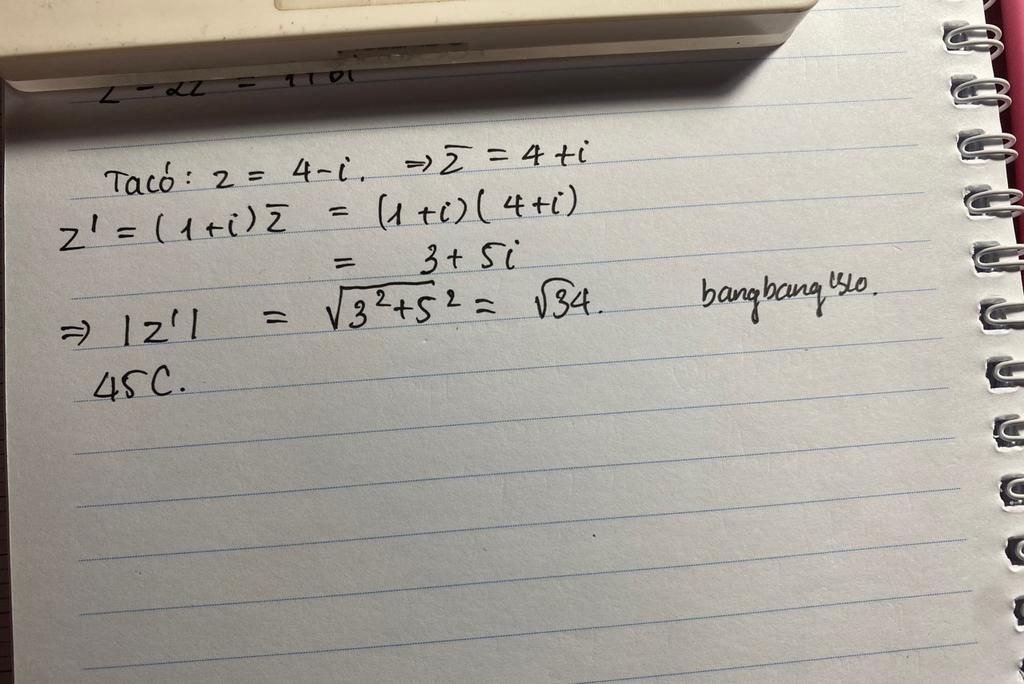 Ta có: z = 4-i. ⇒ z̅ = 4+i
z' = (1+i)z̅ = (1+i)(4+i)
= 3+5i
⇒ |z'| = √3²+5² = √34. bangbang
45C.